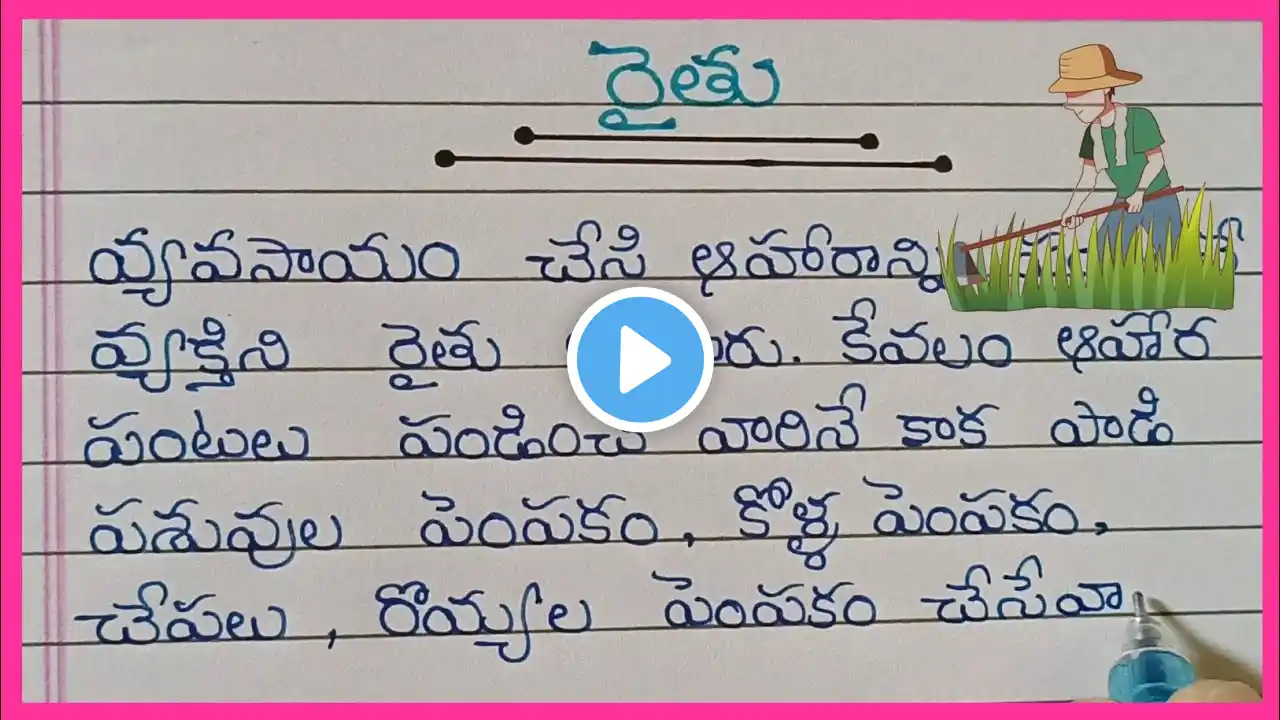 రైతు
వ్యవసాయం చేసి ఆహారాన్ని
వ్యక్తిని రైతు
పంటలు పండించే వారినే కాక పాడి
పశువుల పెంపకం, కోళ్ళ పెంపకం,
చేపలు, రొయ్యల పెంపకం చేసేవా